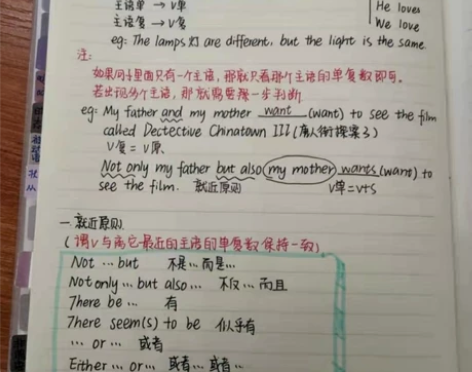 主语单 → v单
He loves
主语复 → v复
We love
eg: The lamps 灯 are different, but the light is the same
注:
如果句子里面只有一个主语，那就只看那个主语的单复数即可。
若出现多个主语，那就需要进一步判断
eg: My father and my mother want (want) to see the film
called Dectective Chinatown III (唐人街探案3)
V复 = V原
Not only my father but also (my mother) wants (want) to
see the film. 就近原则 V单=v+s
一.就近原则
(谓v与离它最近的主语的单复数保持一致)
Not … but 不是…而是…
Not only … but also … 不仅…而且
There be … 有
There seem(s) to be 似乎有
… or … 或者
Either … or … 或者…或者…